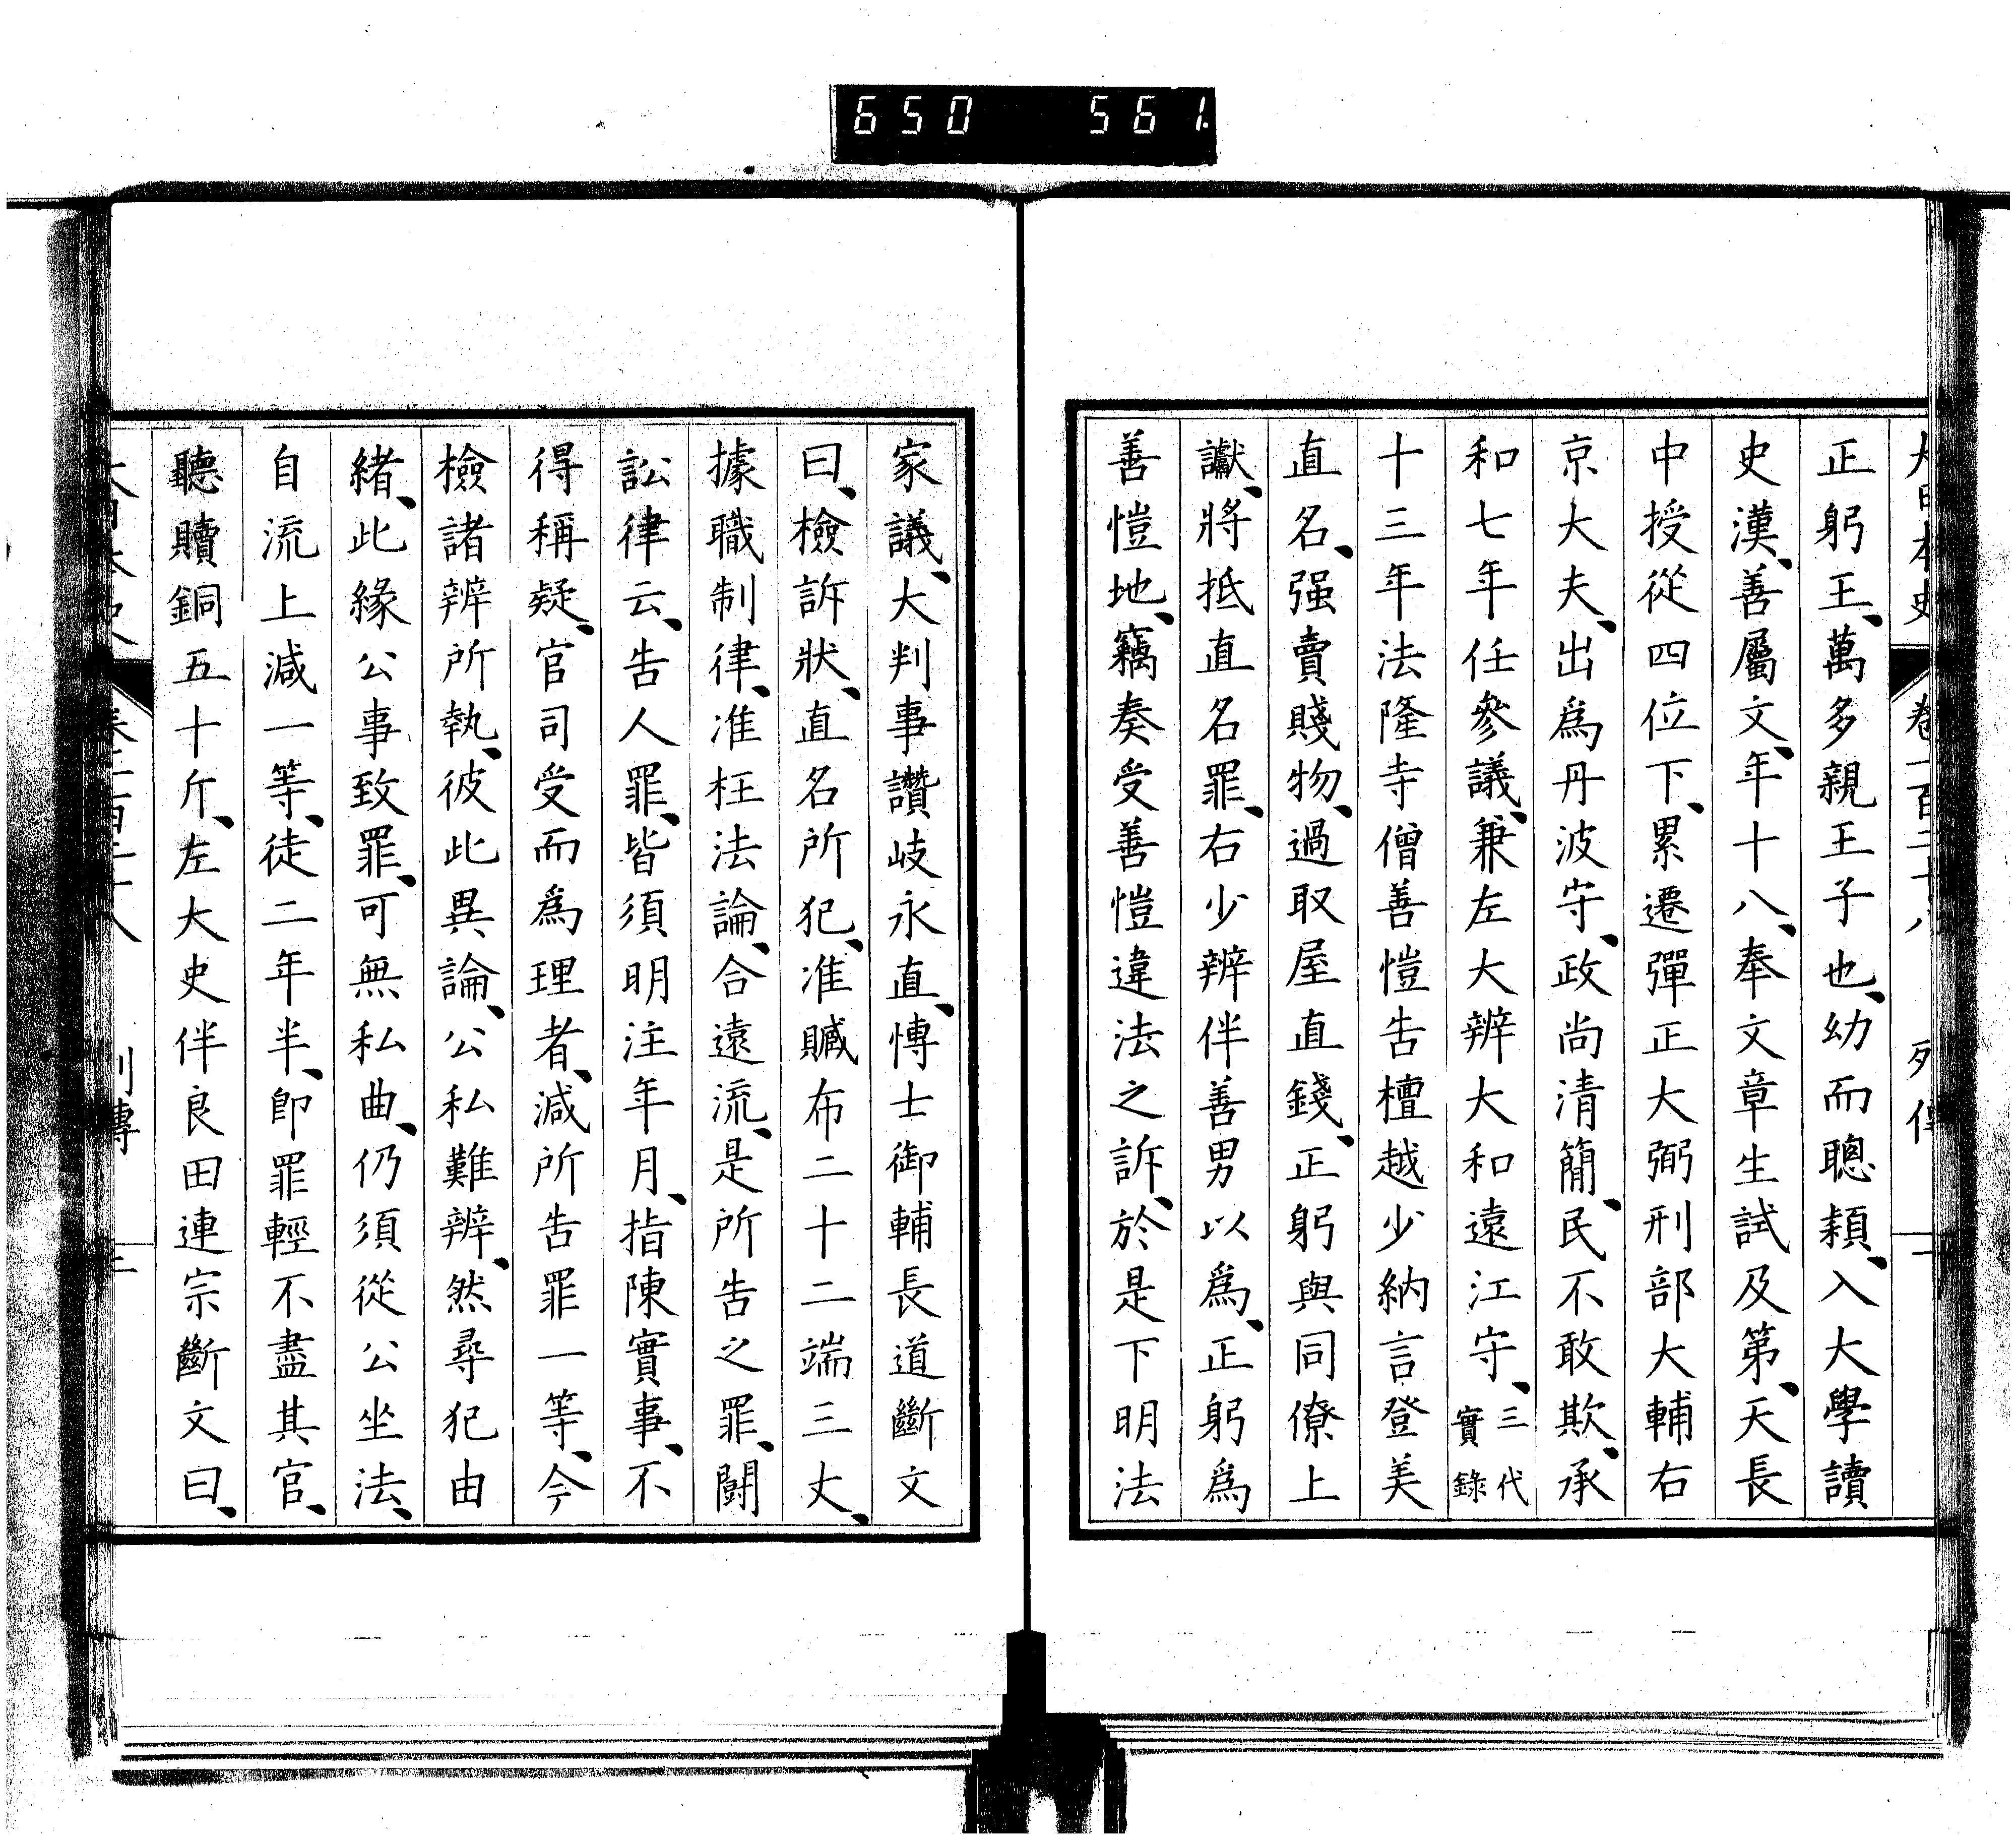 650 561.
大日本史 卷一百二十八 列傳
正躬王、萬多親王子也、幼而聰穎、入大學讀
史漢、善屬文、年十八、奉文章生試及第、天長
中授從四位下、累遷彈正大弼刑部大輔右
京大夫、出爲丹波守、政尚清簡、民不敢欺、承
和七年任參議、兼左大辨大和遠江守、三代實錄
十三年法隆寺僧善愷告檀越少納言登美
直名、强賣賤物、過取屋直錢、正躬與同僚上
讞、將抵直名罪、右少辨伴善男以爲、正躬爲
善愷地、竊奏受善愷違法之訴、於是下明法
家議、大判事讚岐永直、博士御輔長道斷文
曰、檢訴狀、直名所犯、准贓布二十二端三丈、
據職制律、准枉法論、合遠流、是所告之罪、鬪
訟律云、告人罪、皆須明注年月、指陳實事、不
得稱疑、官司受而爲理者、減所告罪一等、今
檢諸辨所執、彼此異論、公私難辨、然尋犯由
緒、此緣公事致罪、可無私曲、仍須從公坐法、
自流上減一等、徒二年半、卽罪輕不盡其官、
聽贖銅五十斤、左大史伴良田連宗斷文曰、